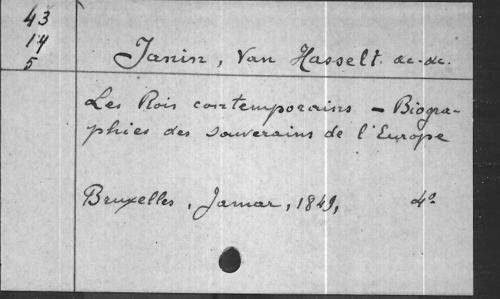 43
14
5
Janin, Van Hasselt. &c. &c.
Les Rois contemporains – Biogra-
phies des souverains de l'Europe
Bruxelles, Jamar, 1849, 4°